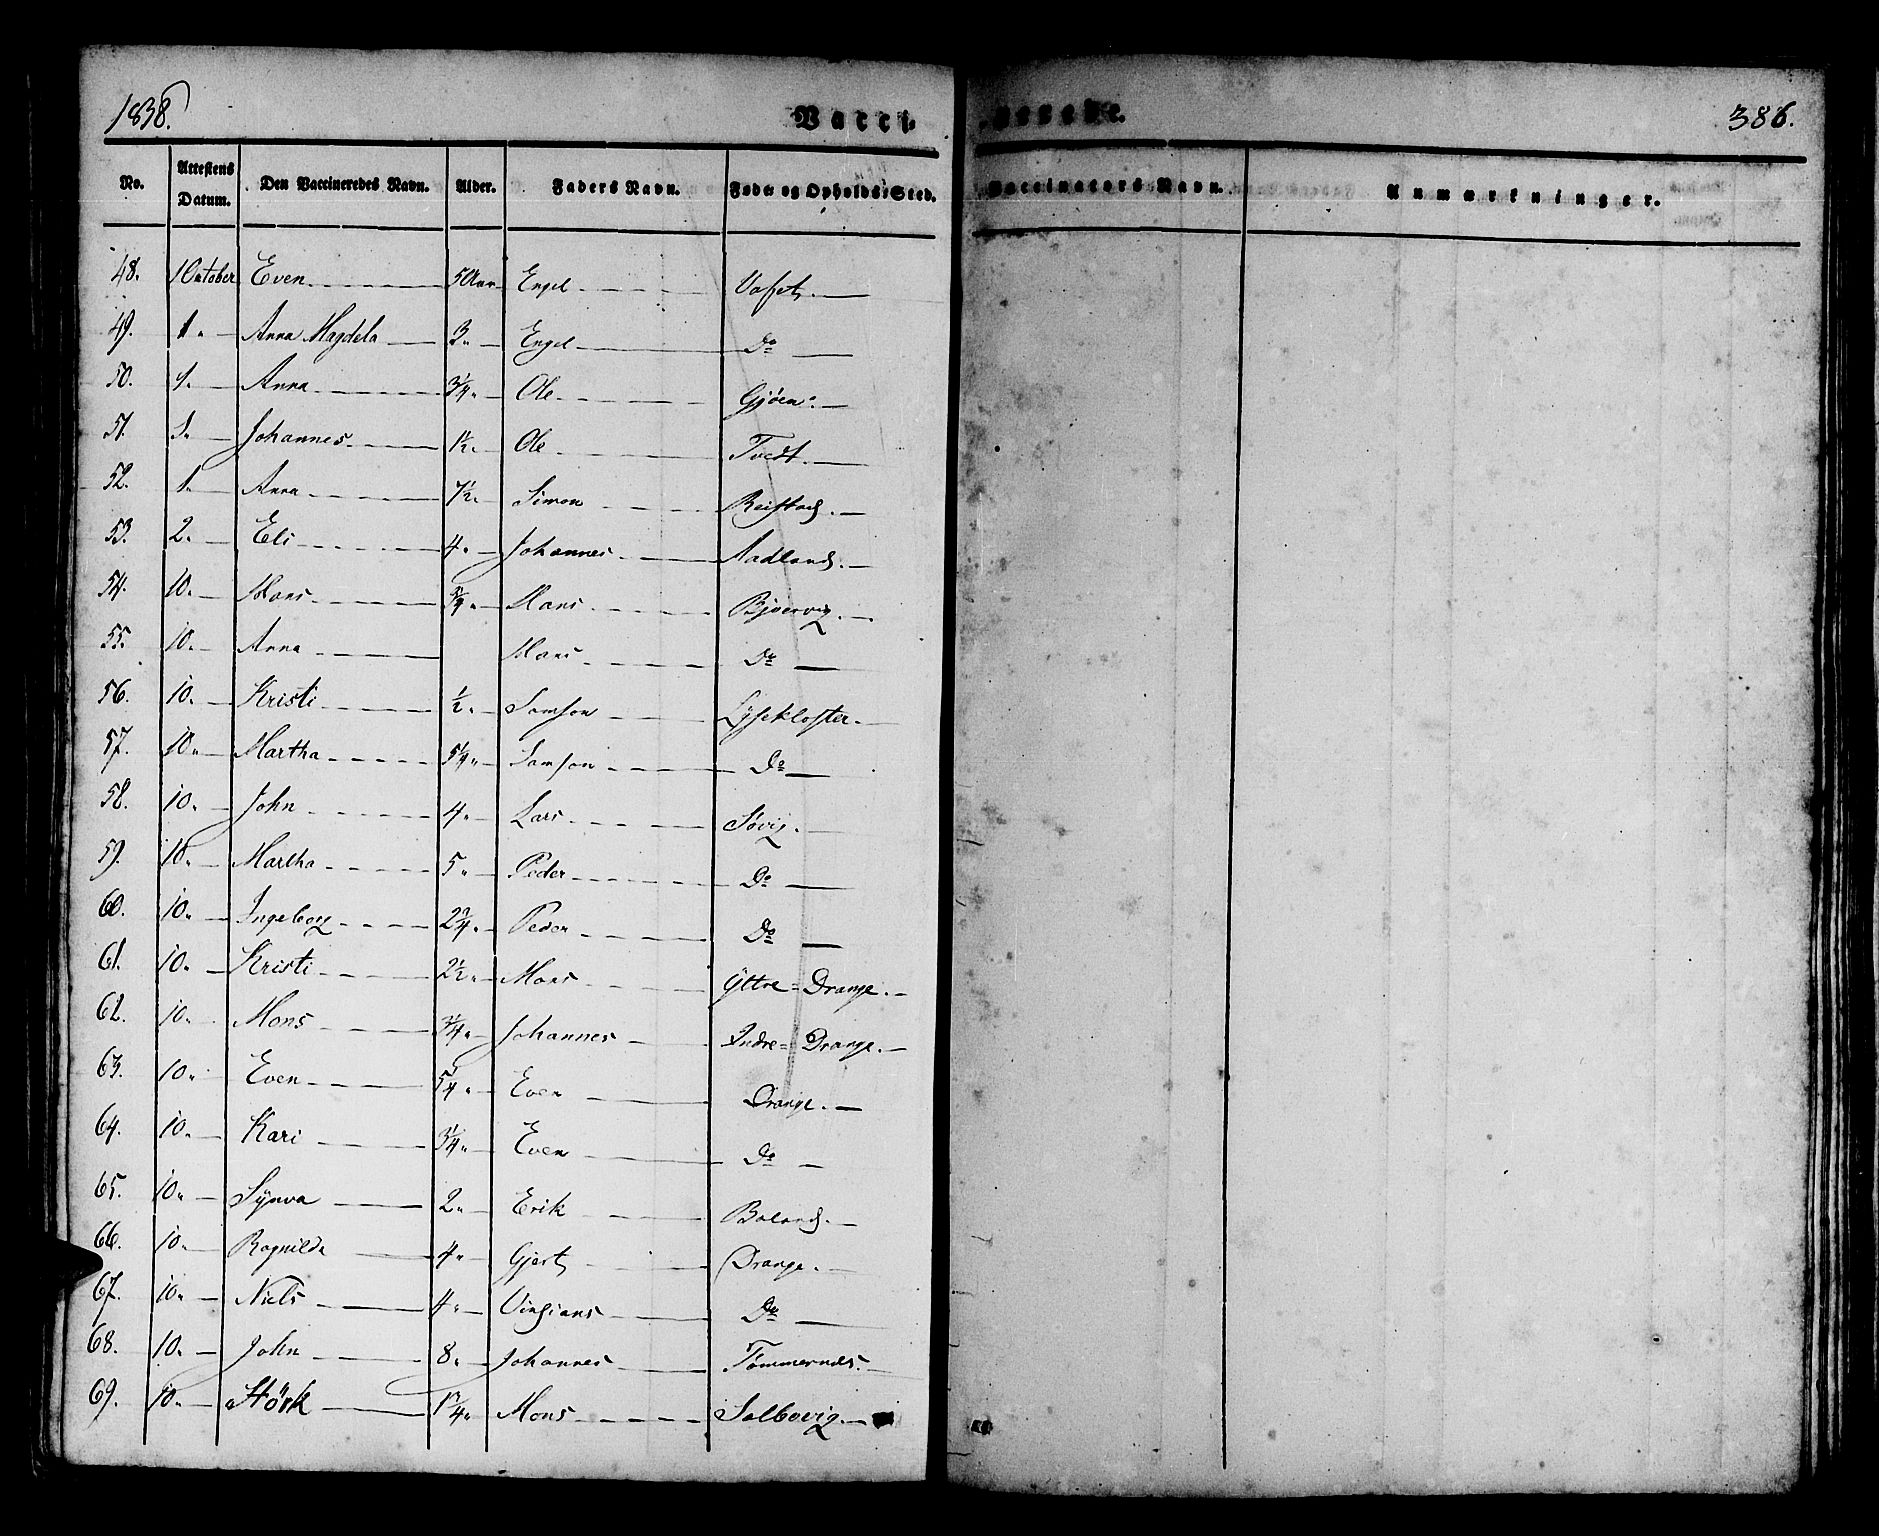 1838.
Vacci-
nerede.
386.
No. Attestens Datum. Den Vaccineredes Navn. Alder. Faders Navn. Føde og Opholds-Sted. Vaccinators Navn. Anmærkninger.
48. 1 October Even 5 Aar Engel
49. 1. Anna Magdela 3. Engel Do
50. 1. Anna 3¼. Ole Gjøen.
51. 1. Johannes 1½. Ole Tvedt.
52. 1. Anna 7½. Simon Reistad.
53. 2. Eli 4. Johannes Aadland.
54. 10. Mons ¾. Mons Bjørvig.
55. 10. Anna Mons Do
56. 10. Kristi ½. Samson Lysekloster.
57. 10. Martha 5¼. Samson Do
58. 10. John 4. Lars Søvig.
59. 10. Martha 5. Peder Do
60. 10. Ingeborg 2¾. Peder Do
61. 10. Kristi 2½. Mons Yttre=Drange.
62. 10. Mons 3¼. Johannes Indre=Drange.
63. 10. Even Even Drange.
64. 10. Kari 3¼. Even Do
65. 10. Synva 2. Erik Boland.
66. 10. Ragnilda 4. Gjert Drange.
67. 10. Niels 4. Do
68. 10. John 8. Johannes Tømmernes.
69. 10. Størk 1¾. Mons Solbovig.